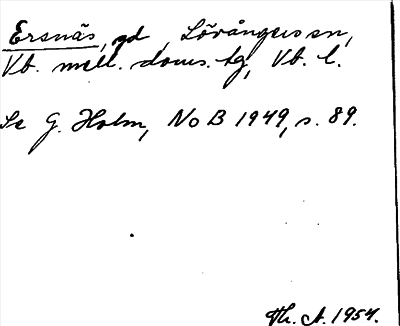 Ersnäs, gd, Lövångers sn,
Vb. mell. doms. tg, Vb. l.
Se G. Holm, NoB 1949, s. 89.
Th. A. 1954.